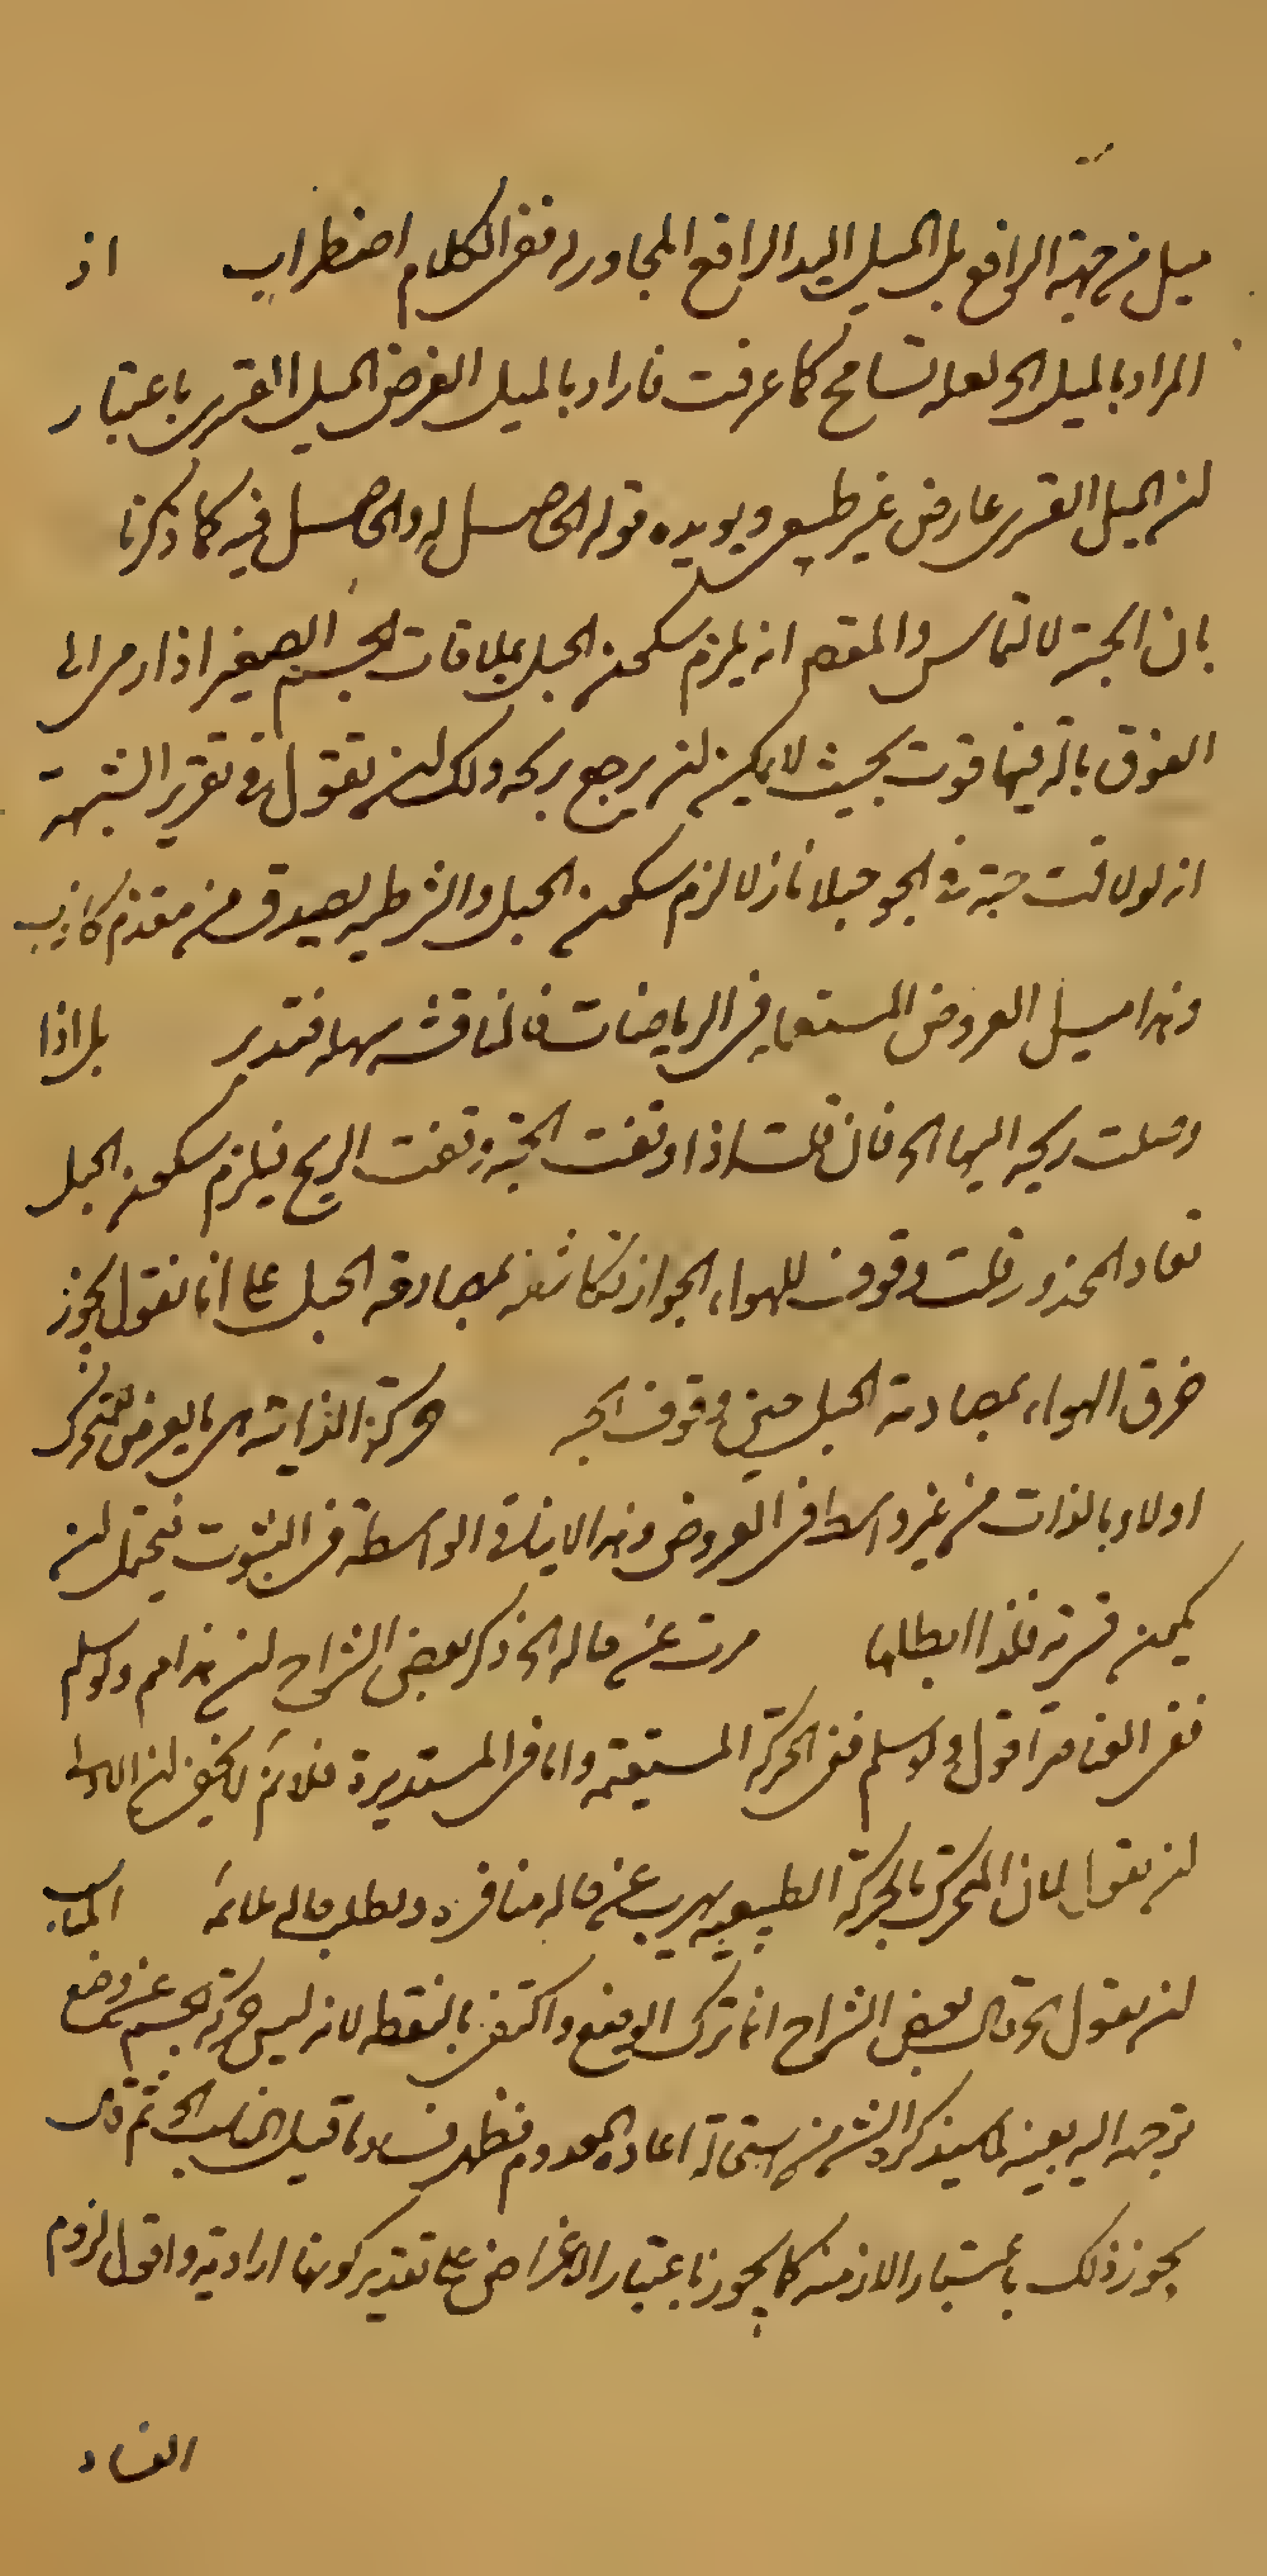 ميل من جهة الرافع بل الميل اليد الرافع المجاور له ففى الكلام اضطراب اذ
المراد بالميل الخ لعله تسامح كما عرفت فاراد بالميل العرضى الميل القسرى باعتبار
ان الميل القسرى عارض غير طبيعى ويويده قوله الحاصل له والحاصل فيه كما ذكرنا
بان الحبة لا تماس والمقصم انه يلزم سكون الجبل بملاقات الجسم الصغير اذا رمى الى
الفوق بالة فيها قوت بحيث لا يمكن ان يرجع بريحه ولك ان تقول فى تقرير الشبهة
انه لو لاقت حبة فى الجو جبلا نازلا لزم سكون الجبل والشرطية يصدق من مقدم كاذب
وهذا ميل العروض المستعمله فى الرياضات فالمناقشه سهله فتدبر بل اذا
وصلت ريحه اليها الخ فان قلت اذا وقفت الحبة وقفت الريح فيلزم سكون الجبل
فعاد المحذور قلت وقوف للهواء لجواز تكاثفه بمصادفه الجبل على انا نقول يجوز
خرق الهواء بمصادمة الجبل حين وقوف الحبه حركة الذاتيه هى ما يعرض للمتحرك
اولا وبالذات من غير واسطه فى العروض وهذا لا ينافى الواسطة فى الثبوت فيحتمل ان
يكون قسرية فلذا ابطلها هربت عن حاله الخ ذكر بعض الشراح ان هذا مم ولو سلم
ففى العناصر اقول ولو سلم ففى الحركة المستقيمه واما فى المستديرة فلا ثم لا يخفى ان الاولى
ان يقول لان المتحرك بالحركة الطبيعيه يهرب عن حاله منافره ويطلب حاله ملائمه المناسب
ان يقول الخ وقال بعض الشراح انما ترك الوضع واكتفى بالنقطه لانه ليس حركة الجسم عن وضع
توجهه اليه بعينه لما سيذكر الش من استحالة اعاده المعدوم فظهر فساد ما قيل المناسب الخ ثم قال
يجوز ذلك باعتبار الازمنه كما يجوز باعتبار الاغراض على تقدير كونها ارادية واقول لزوم
الفساد